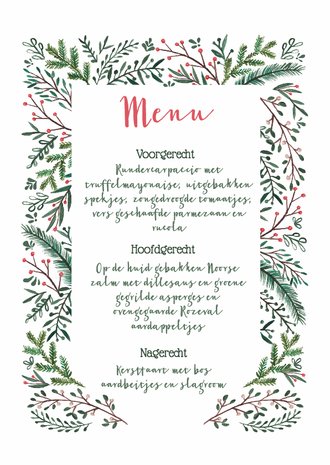 Menu
Voorgerecht
Rundercarpaccio met
truffelmayonaise, uitgebakken
spekjes, zongedroogde tomaatjes,
vers geschaafde parmezaan en
rucola
Hoofdgerecht
Op de huid gebakken Noorse
zalm met dillesaus en groene
gegrilde asperges en
ovengegaarde Rozeval
aardappeltjes
Nagerecht
Kersttaart met bos
aardbeitjes en slagroom